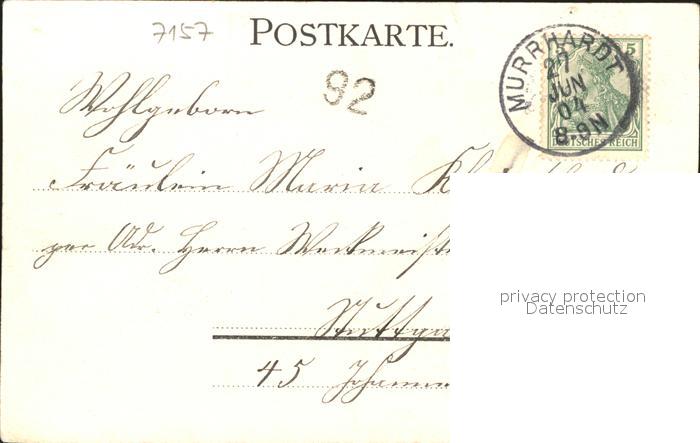 7157
POSTKARTE.
MURRHARDT
27
JUN
04
8-9N
5
DEUTSCHES REICH
92
Wohlgeboren
Fräulein Maria
per Adr. Herrn
Stuttga
45 Johann
privacy protection
Datenschutz